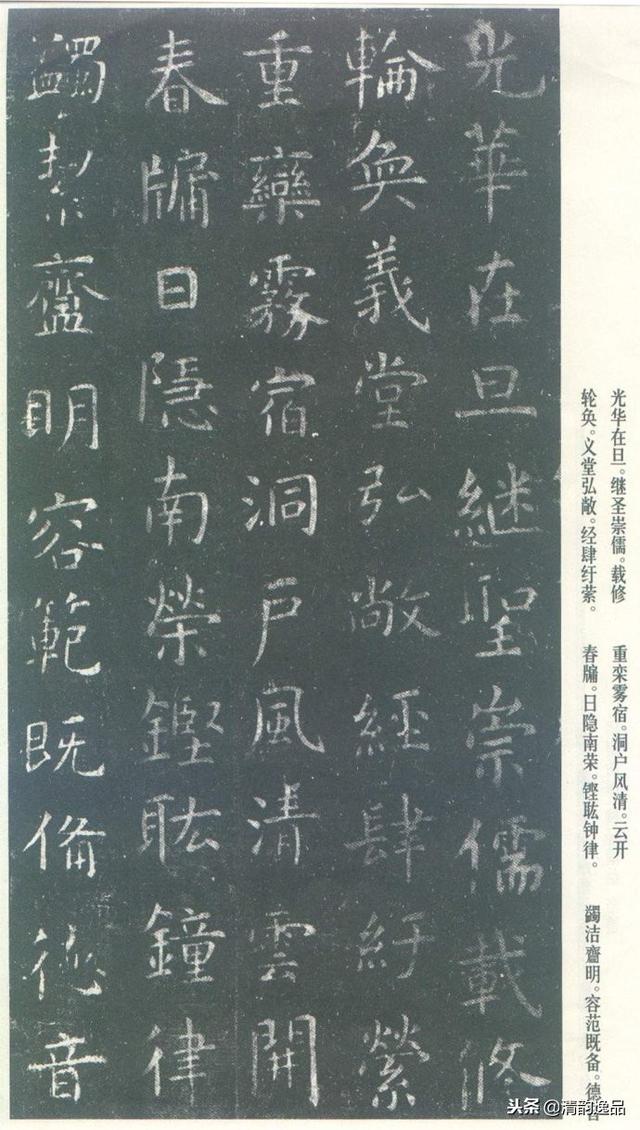 光華在旦継聖崇儒載修
輪奐義堂弘敞經肆紆縈
重欒霧宿洞戶風清雲開
春牖日隠南榮鏗耾鐘律
蠲絜齍明容範既俻德音
光华在旦。继圣崇儒。载修
轮奂。义堂弘敞。经肆纡萦。
重栾雾宿。洞户风清。云开
春牖。日隐南荣。铿耾钟律。
蠲洁齍明。容范既备。德音
头条@清韵逸品